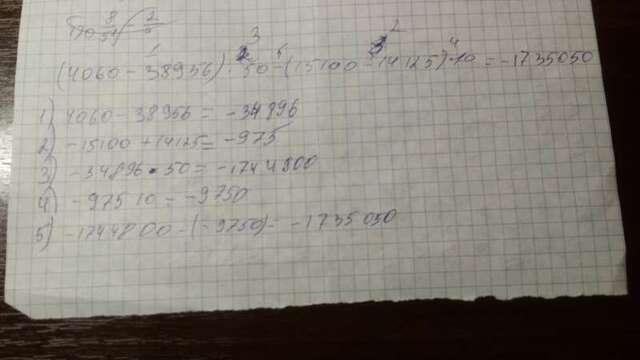 3 2
1 5 4
(4060 - 38956) · 50 - (15100 - 14125) · 10 = -1735050
1) 4060 - 38956 = -34896
2) -15100 + 14125 = -975
3) -34896 · 50 = -1744800
4) -975 10 = -9750
5) -1744800 - (-9750) - -1735050